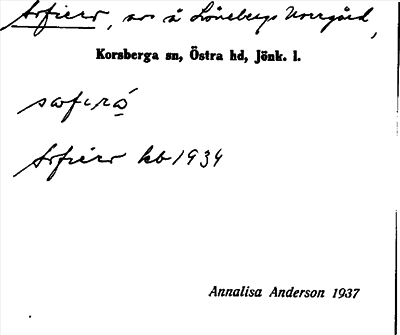 Sofiero, avs å Lönebergs Norrgård,
Korsberga sn, Östra hd, Jönk. l.
sofirò
Sofiero kb 1934
Annalisa Anderson 1937